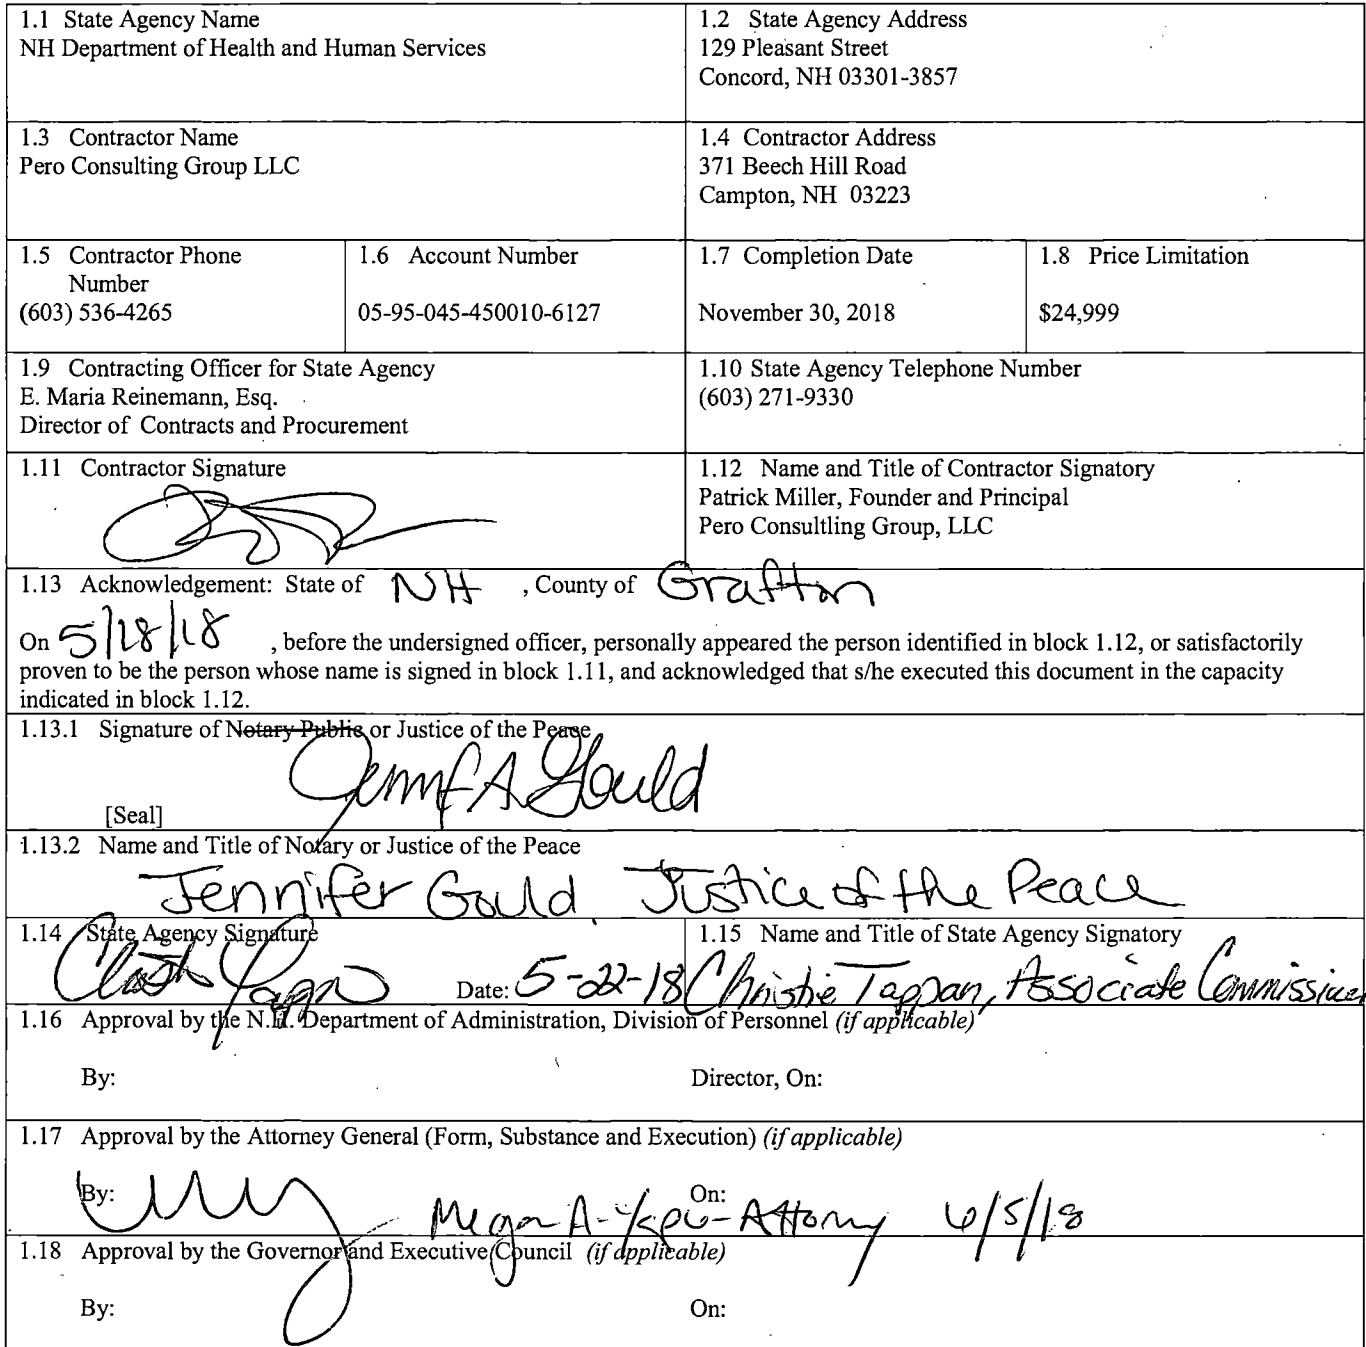 1.1 State Agency Name
NH Department of Health and Human Services
1.2 State Agency Address
129 Pleasant Street
Concord, NH 03301-3857
1.3 Contractor Name
Pero Consulting Group LLC
1.4 Contractor Address
371 Beech Hill Road
Campton, NH 03223
1.5 Contractor Phone
Number
(603) 536-4265
1.6 Account Number
05-95-045-450010-6127
1.7 Completion Date
November 30, 2018
1.8 Price Limitation
$24,999
1.9 Contracting Officer for State Agency
E. Maria Reinemann, Esq.
Director of Contracts and Procurement
1.10 State Agency Telephone Number
(603) 271-9330
1.11 Contractor Signature
1.12 Name and Title of Contractor Signatory
Patrick Miller, Founder and Principal
Pero Consultling Group, LLC
1.13 Acknowledgement: State of NH , County of Grafton
On 5/18/18 , before the undersigned officer, personally appeared the person identified in block 1.12, or satisfactorily
proven to be the person whose name is signed in block 1.11, and acknowledged that s/he executed this document in the capacity
indicated in block 1.12.
1.13.1 Signature of Notary Public or Justice of the Peace
A Gould
[Seal]
1.13.2 Name and Title of Notary or Justice of the Peace
Jennifer Gould, Justice of the Peace
1.14 State Agency Signature
Date: 5-22-18
1.15 Name and Title of State Agency Signatory
Christie Tappan, Associate Commissioner
1.16 Approval by the N.H. Department of Administration, Division of Personnel (if applicable)
By:
Director, On:
1.17 Approval by the Attorney General (Form, Substance and Execution) (if applicable)
By:
On:
Megan A- - Attorney 6/5/18
1.18 Approval by the Governor and Executive Council (if applicable)
By:
On: